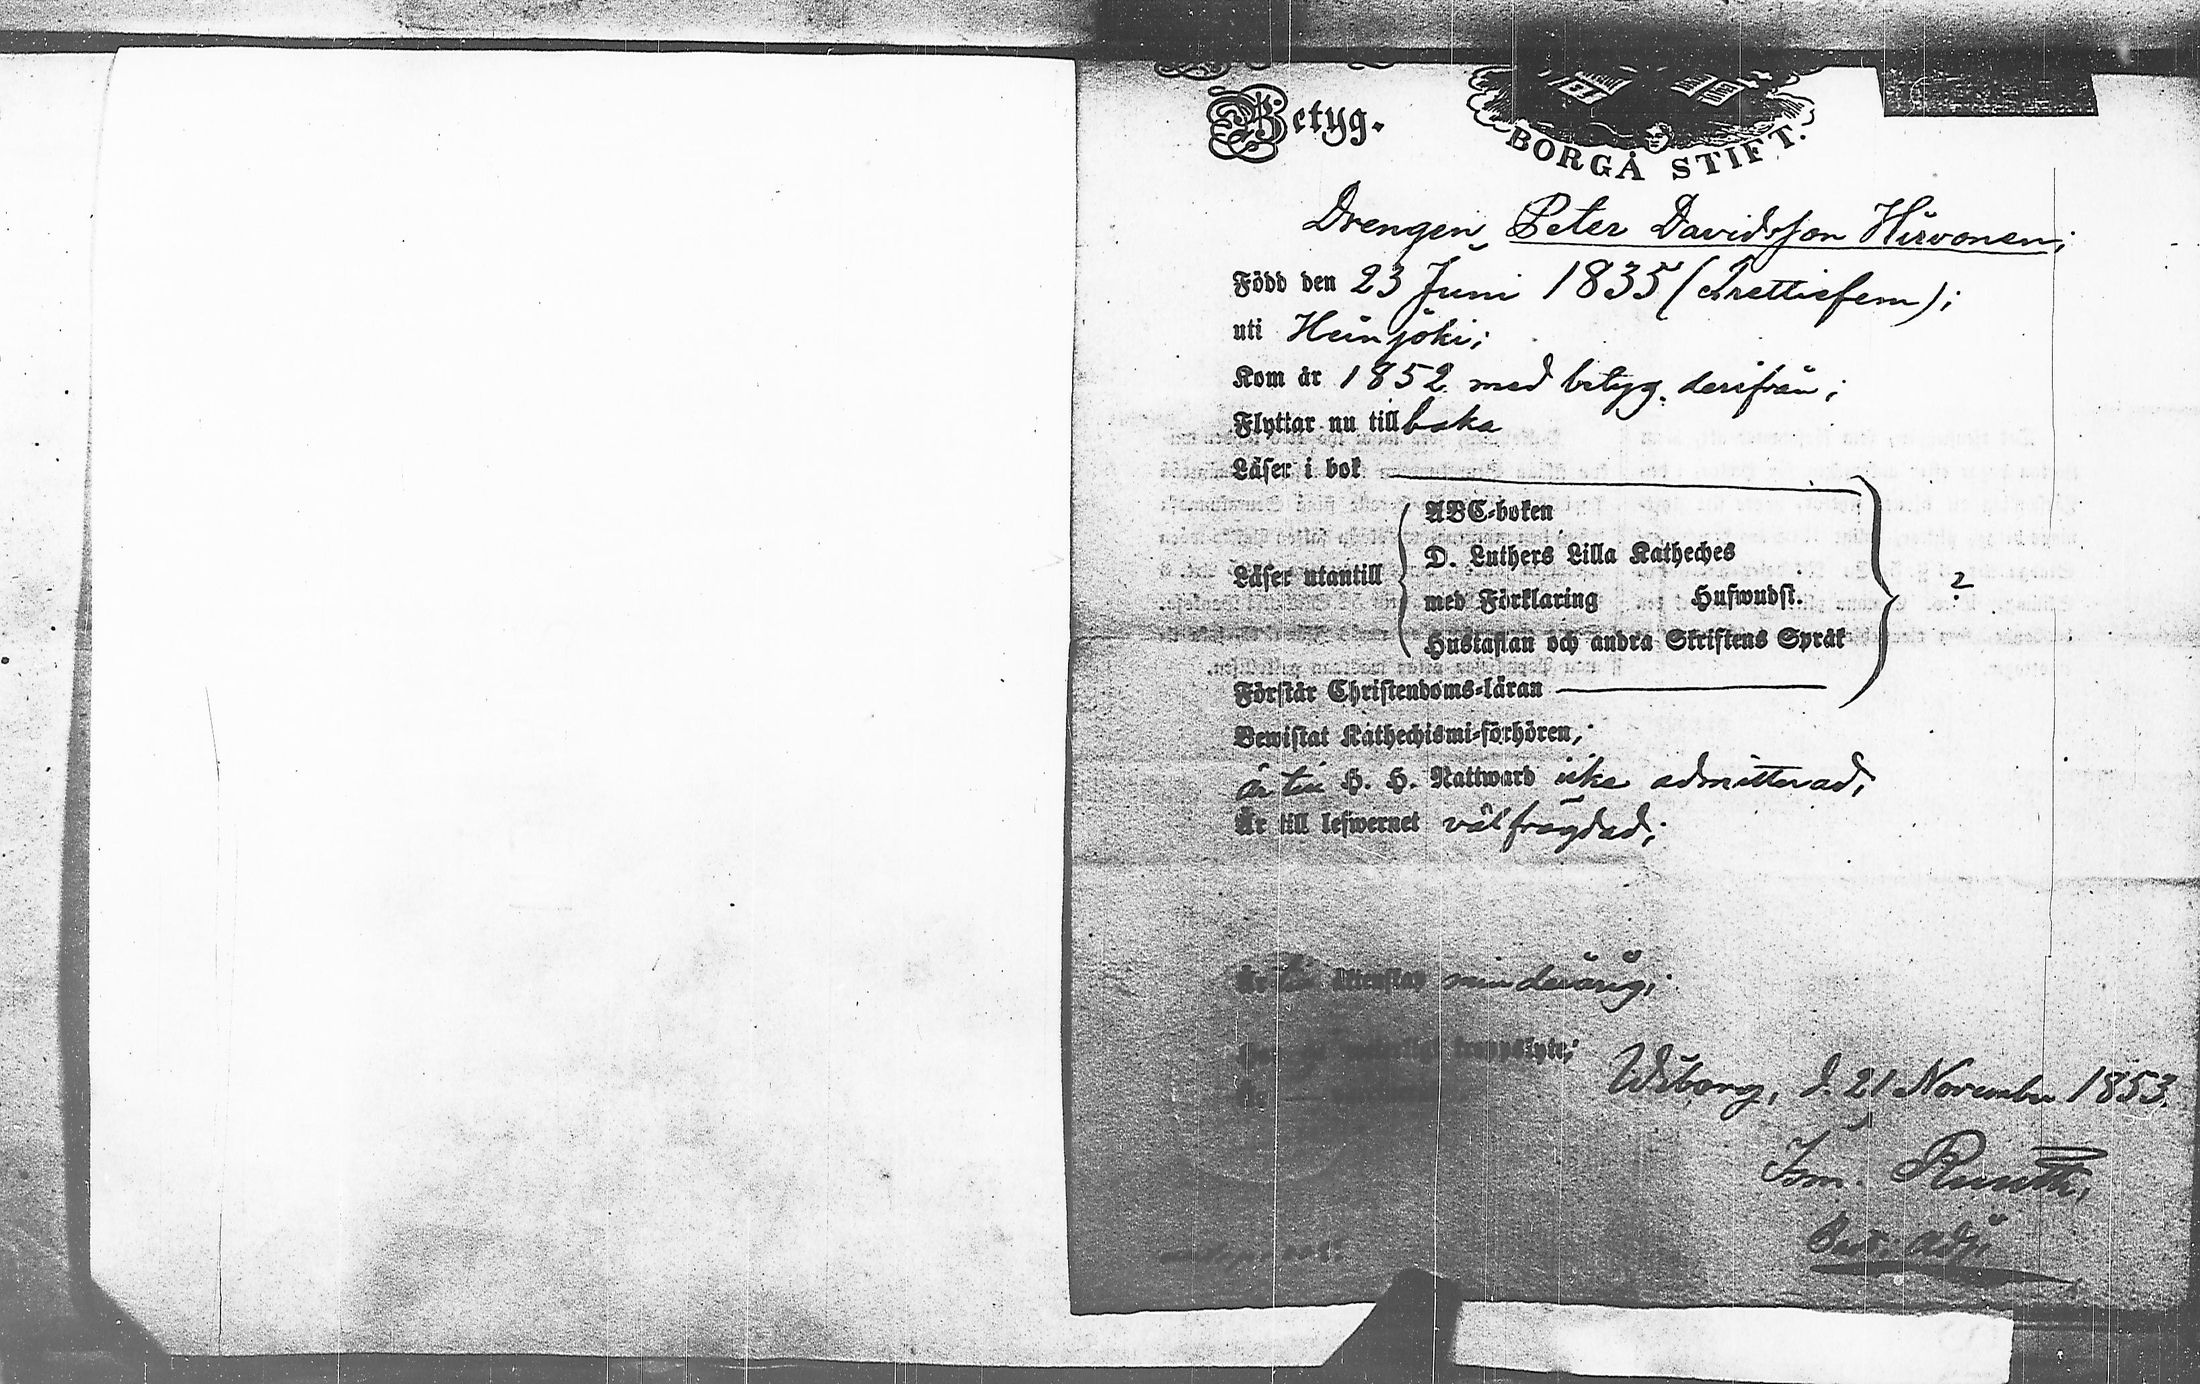 Betyg.
BORGÅ STIFT.
Drengen Peter Davidsson Hirvonen;
Född den 23 Juni 1835 (trettiofem);
uti Heinjoki;
Kom år 1852 med betyg derifrån;
Flyttar nu tillbaka
Läser i bok
Läser utantill
ABC-boken
D. Luthers Lilla Katheches
med Förklaring Hufwudst.
Hustaflan och andra Skriftens Språk
?
Förstår Christendoms-läran
Bewistat Kathechismi-förhören,
är till H. H. Nattward icke admitterad,
Är till lefwernet välfrägdad;
Är till äktenskap minderårig;
Wiborg, d. 21 November 1853.